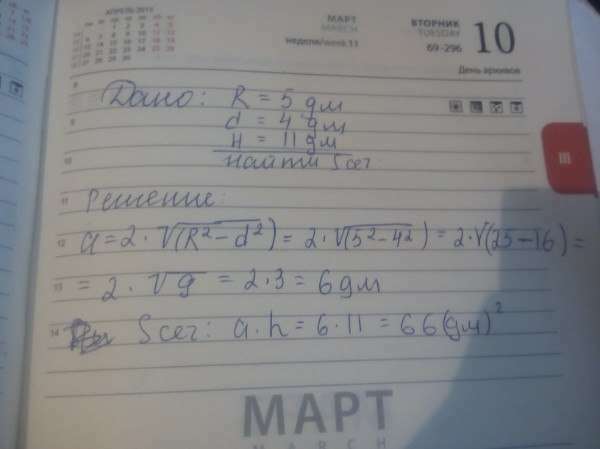 АПРЕЛЬ 2015
МАРТ
MARCH
недели/week 11
ВТОРНИК
TUESDAY
69-296
10
День архивов
Дано: R = 5 дм
d = 4 дм
H = 11 дм
Найти Sсег
III
Решение:
a = 2 · √(R² - d²) = 2 · √(5² - 4²) = 2 · √(25 - 16) =
= 2 · √9 = 2 · 3 = 6 дм
Sсег: a · h = 6 · 11 = 66 (дм)²
МАРТ
MARCH
9
9
10
11
12
13
14